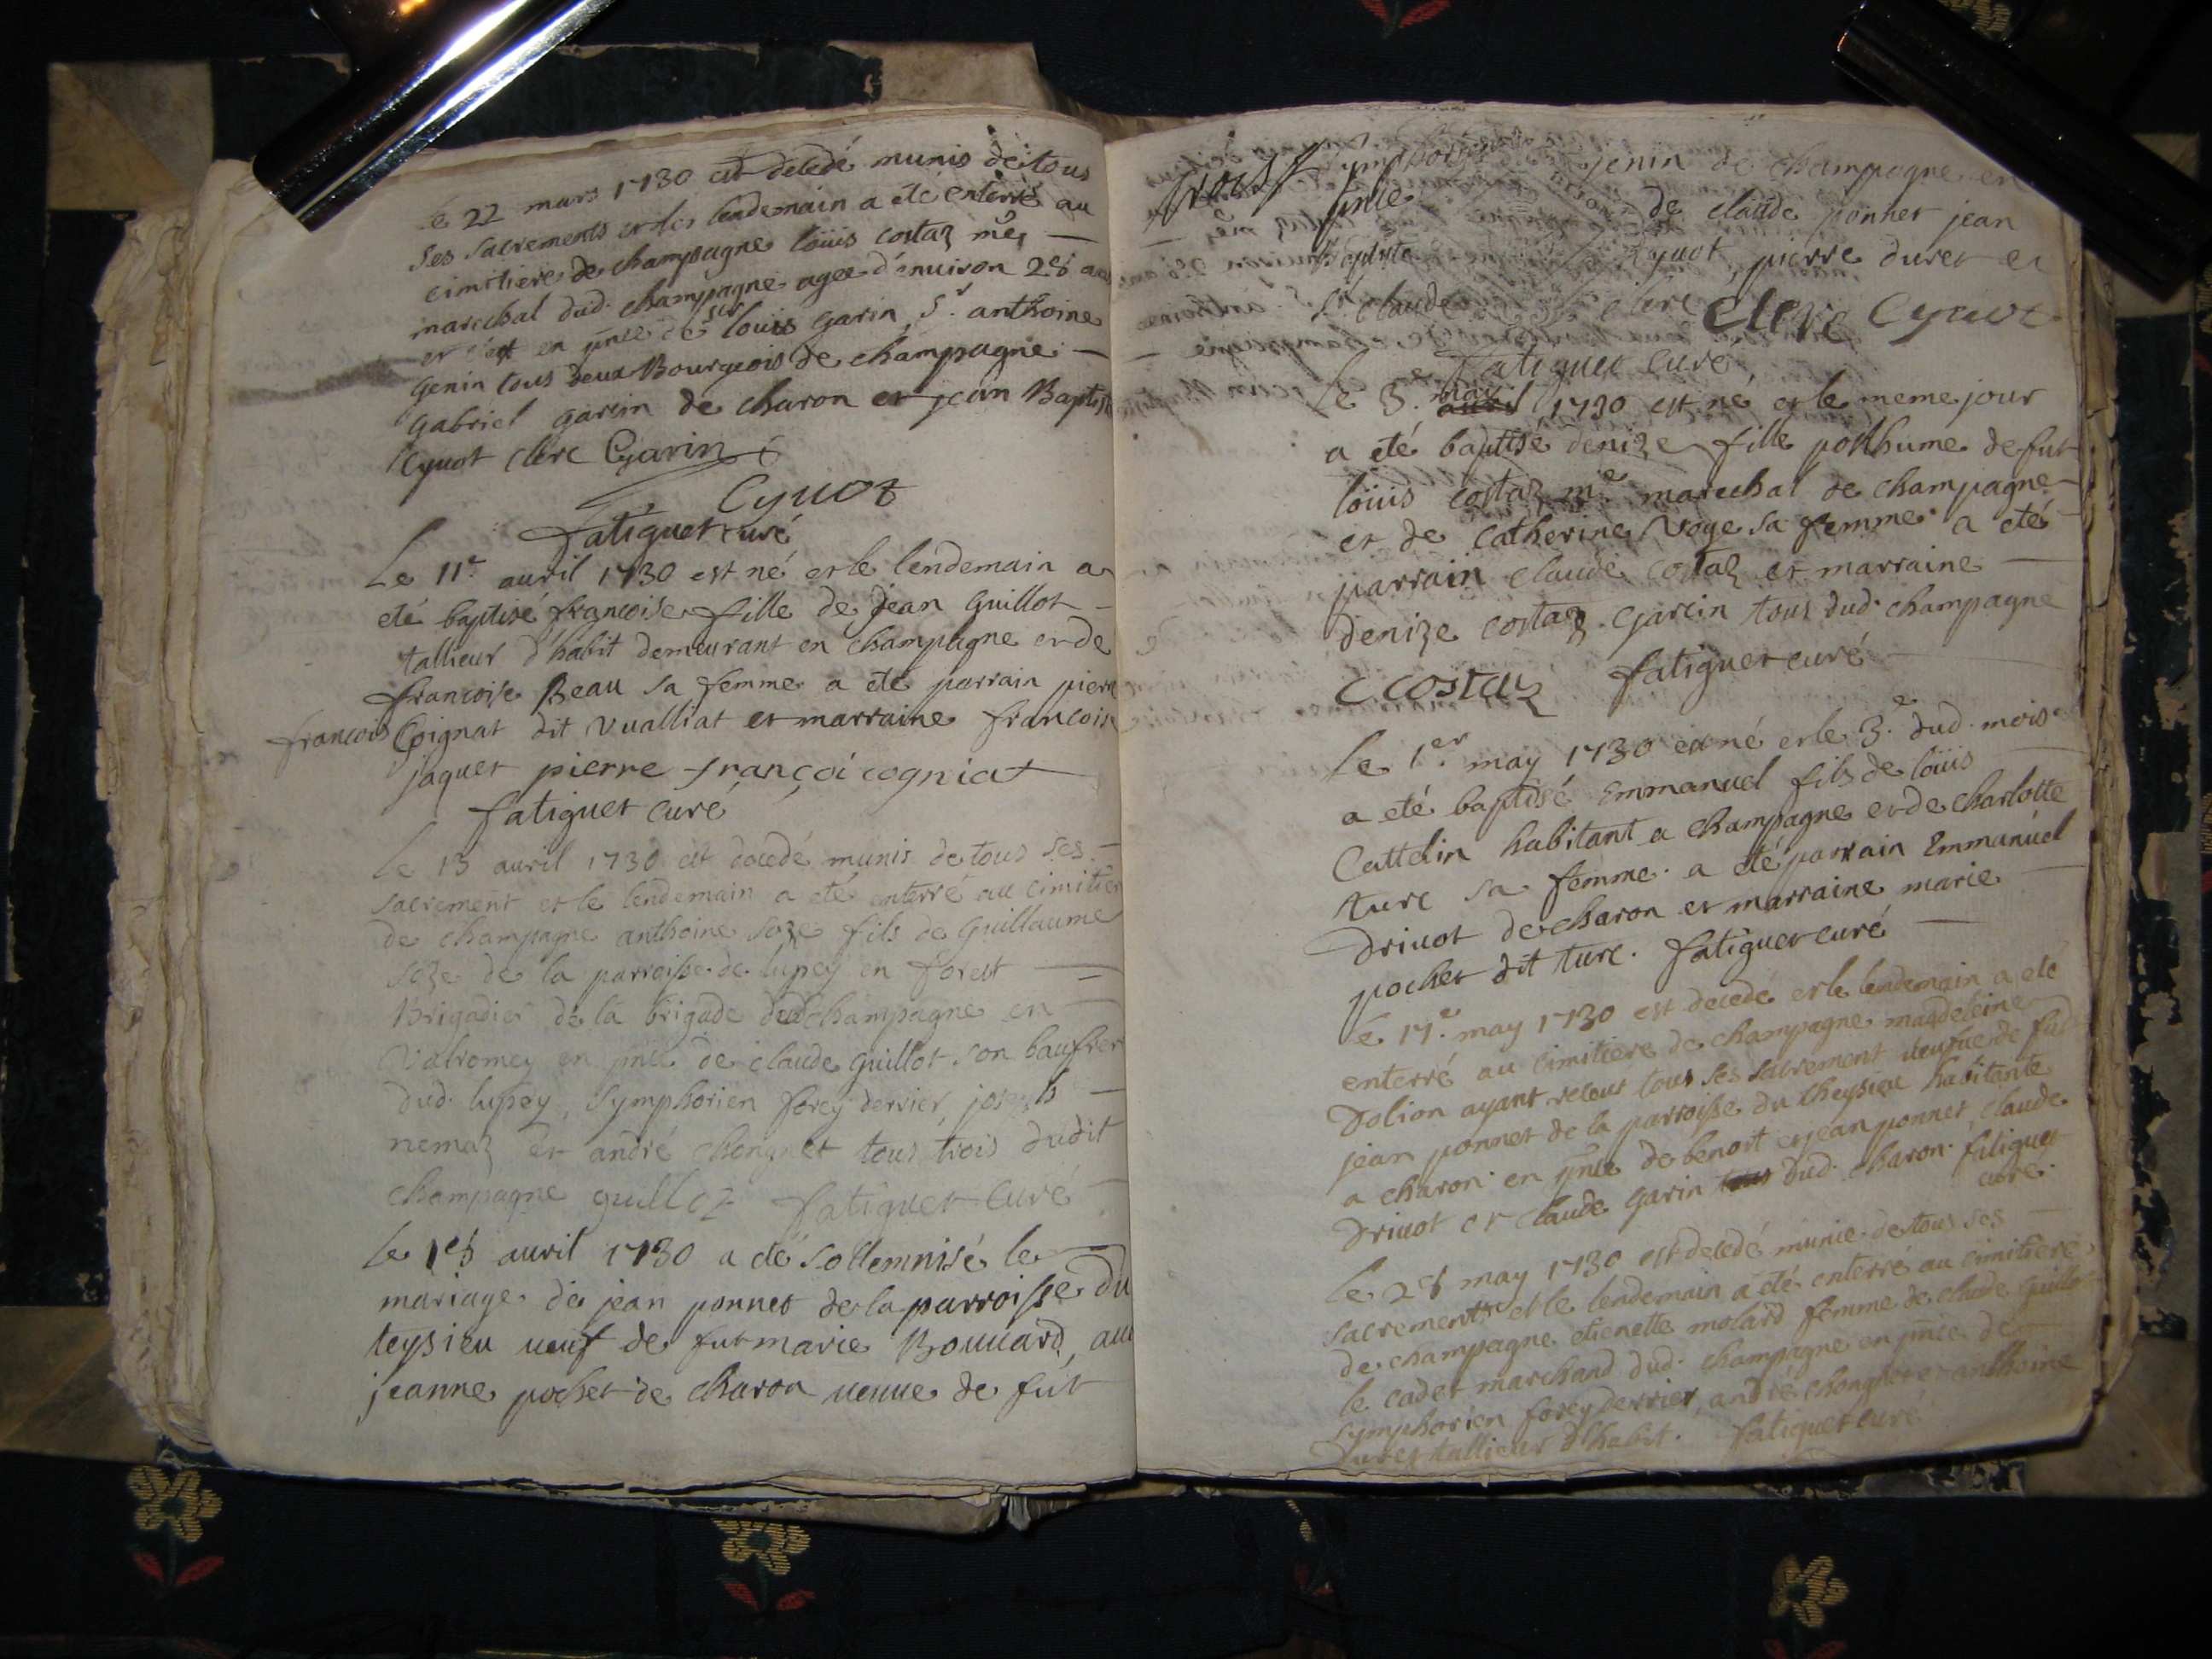 Le 22 mars 1730 est decedé munis de tous
ses sacrements et le lendemain a eté enterré au
cimitiere de champagne loüis costaz me
marechal dud. champagne agee d'enuiron 28 ans
et c'est en pnce de sr loüis garin, Sr. anthoine
genin tous deux Bourgeois de champagne
gabriel garin de charon et jean Baptiste
Cyuot clerc Garin
Cyuot
fatiguet curé
Le 11e auril 1730 est né et le lendemain a
eté baptisé francoise fille de jean guillot
tallieur d'habit demeurant en champagne et de
francoise Beau sa femme a eté parrain pierre
francois Coignat dit vualliat et marraine francoise
jaquet pierre françoi cogniat
fatiguet curé
Le 13 auril 1730 est decedé munis de tous ses
sacrement et le lendemain a eté enterré au cimitiere
de champagne anthoine soze fils de Guillaume
soze de la parroisse de lupey en forest
Brigadier de la brigade dud champagne en
valromey en pnce de claude guillot son baufrer
dud. lupey, symphorien forey derrier, joseph
nemaz et andré chongnet tous trois dudit
champagne guilloz fatiguet curé
Le 18 auril 1730 a eté sollemnisé le
mariage de jean ponnet de la parroisse du
teysieu ueuf de fut marie Bouuard, au
jeanne pochet de charon ueuue de fut
genin de champagne en
pnce de claude ponnet jean
Baptiste Cyuot, pierre duret et
Sr claude clerc Cyuot
fatiguet curé
Le 3e. may 1730 est né et le meme jour
a eté baptisé denize fille posthume de fut
loüis costaz me marechal de champagne
et de catherine voye sa femme a eté
parrain claude costaz et marraine
denize costaz garcin tous dud. champagne
c costaz fatiguet curé
Le 1er may 1730 est né et le 3e. dud. mois
a eté baptisé Emmanuel fils de loüis
Cattelin habitant a champagne et de charlotte
turc sa femme. a eté parrain Emmanuel
Driuot de charon et marraine marie
pochet dit turc. fatiguet curé
le 17e. may 1730 est decedé et le lendemain a eté
enterré au cimitiere de champagne magdeleine
Dolion ayant receut tous ses sacrement ueufue de fut
jean ponnet de la parroisse du theysieu habitante
a charon en pnce de benoit et jean ponnet, claude
Driuot et claude garin dud. charon. fatiguet
curé.
Le 28 may 1730 est decedé munie de tous ses
sacrements et le lendemain a eté enterré au cimitiere
de champagne etienette molard femme de claude guillot
le cadet marchand dud. champagne en pnce de
symphorien forey derrier, andré chongnet et anthoine
duret tallieur d'habit. fatiguet curé